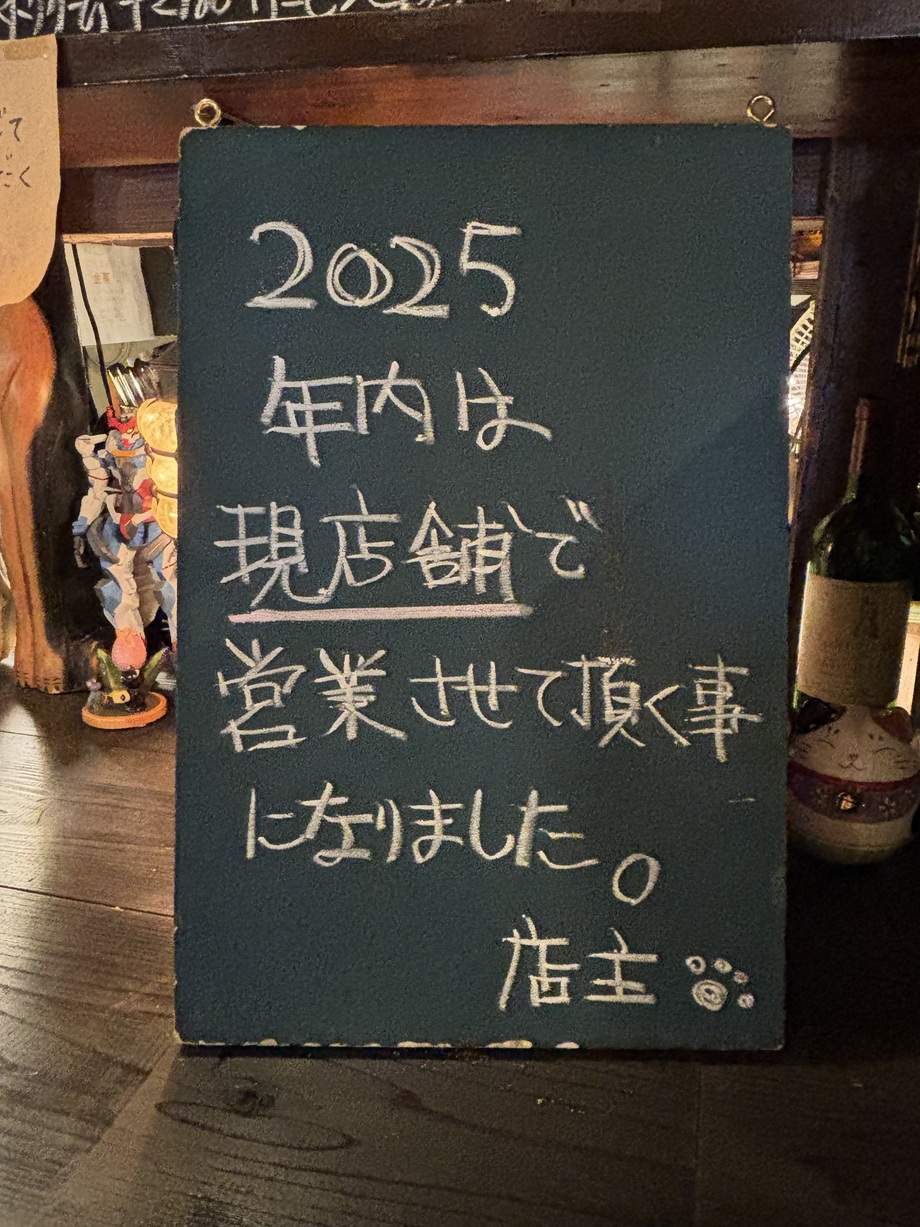 2025
年内は
現店舗で
営業させて頂く事
になりました。
店主